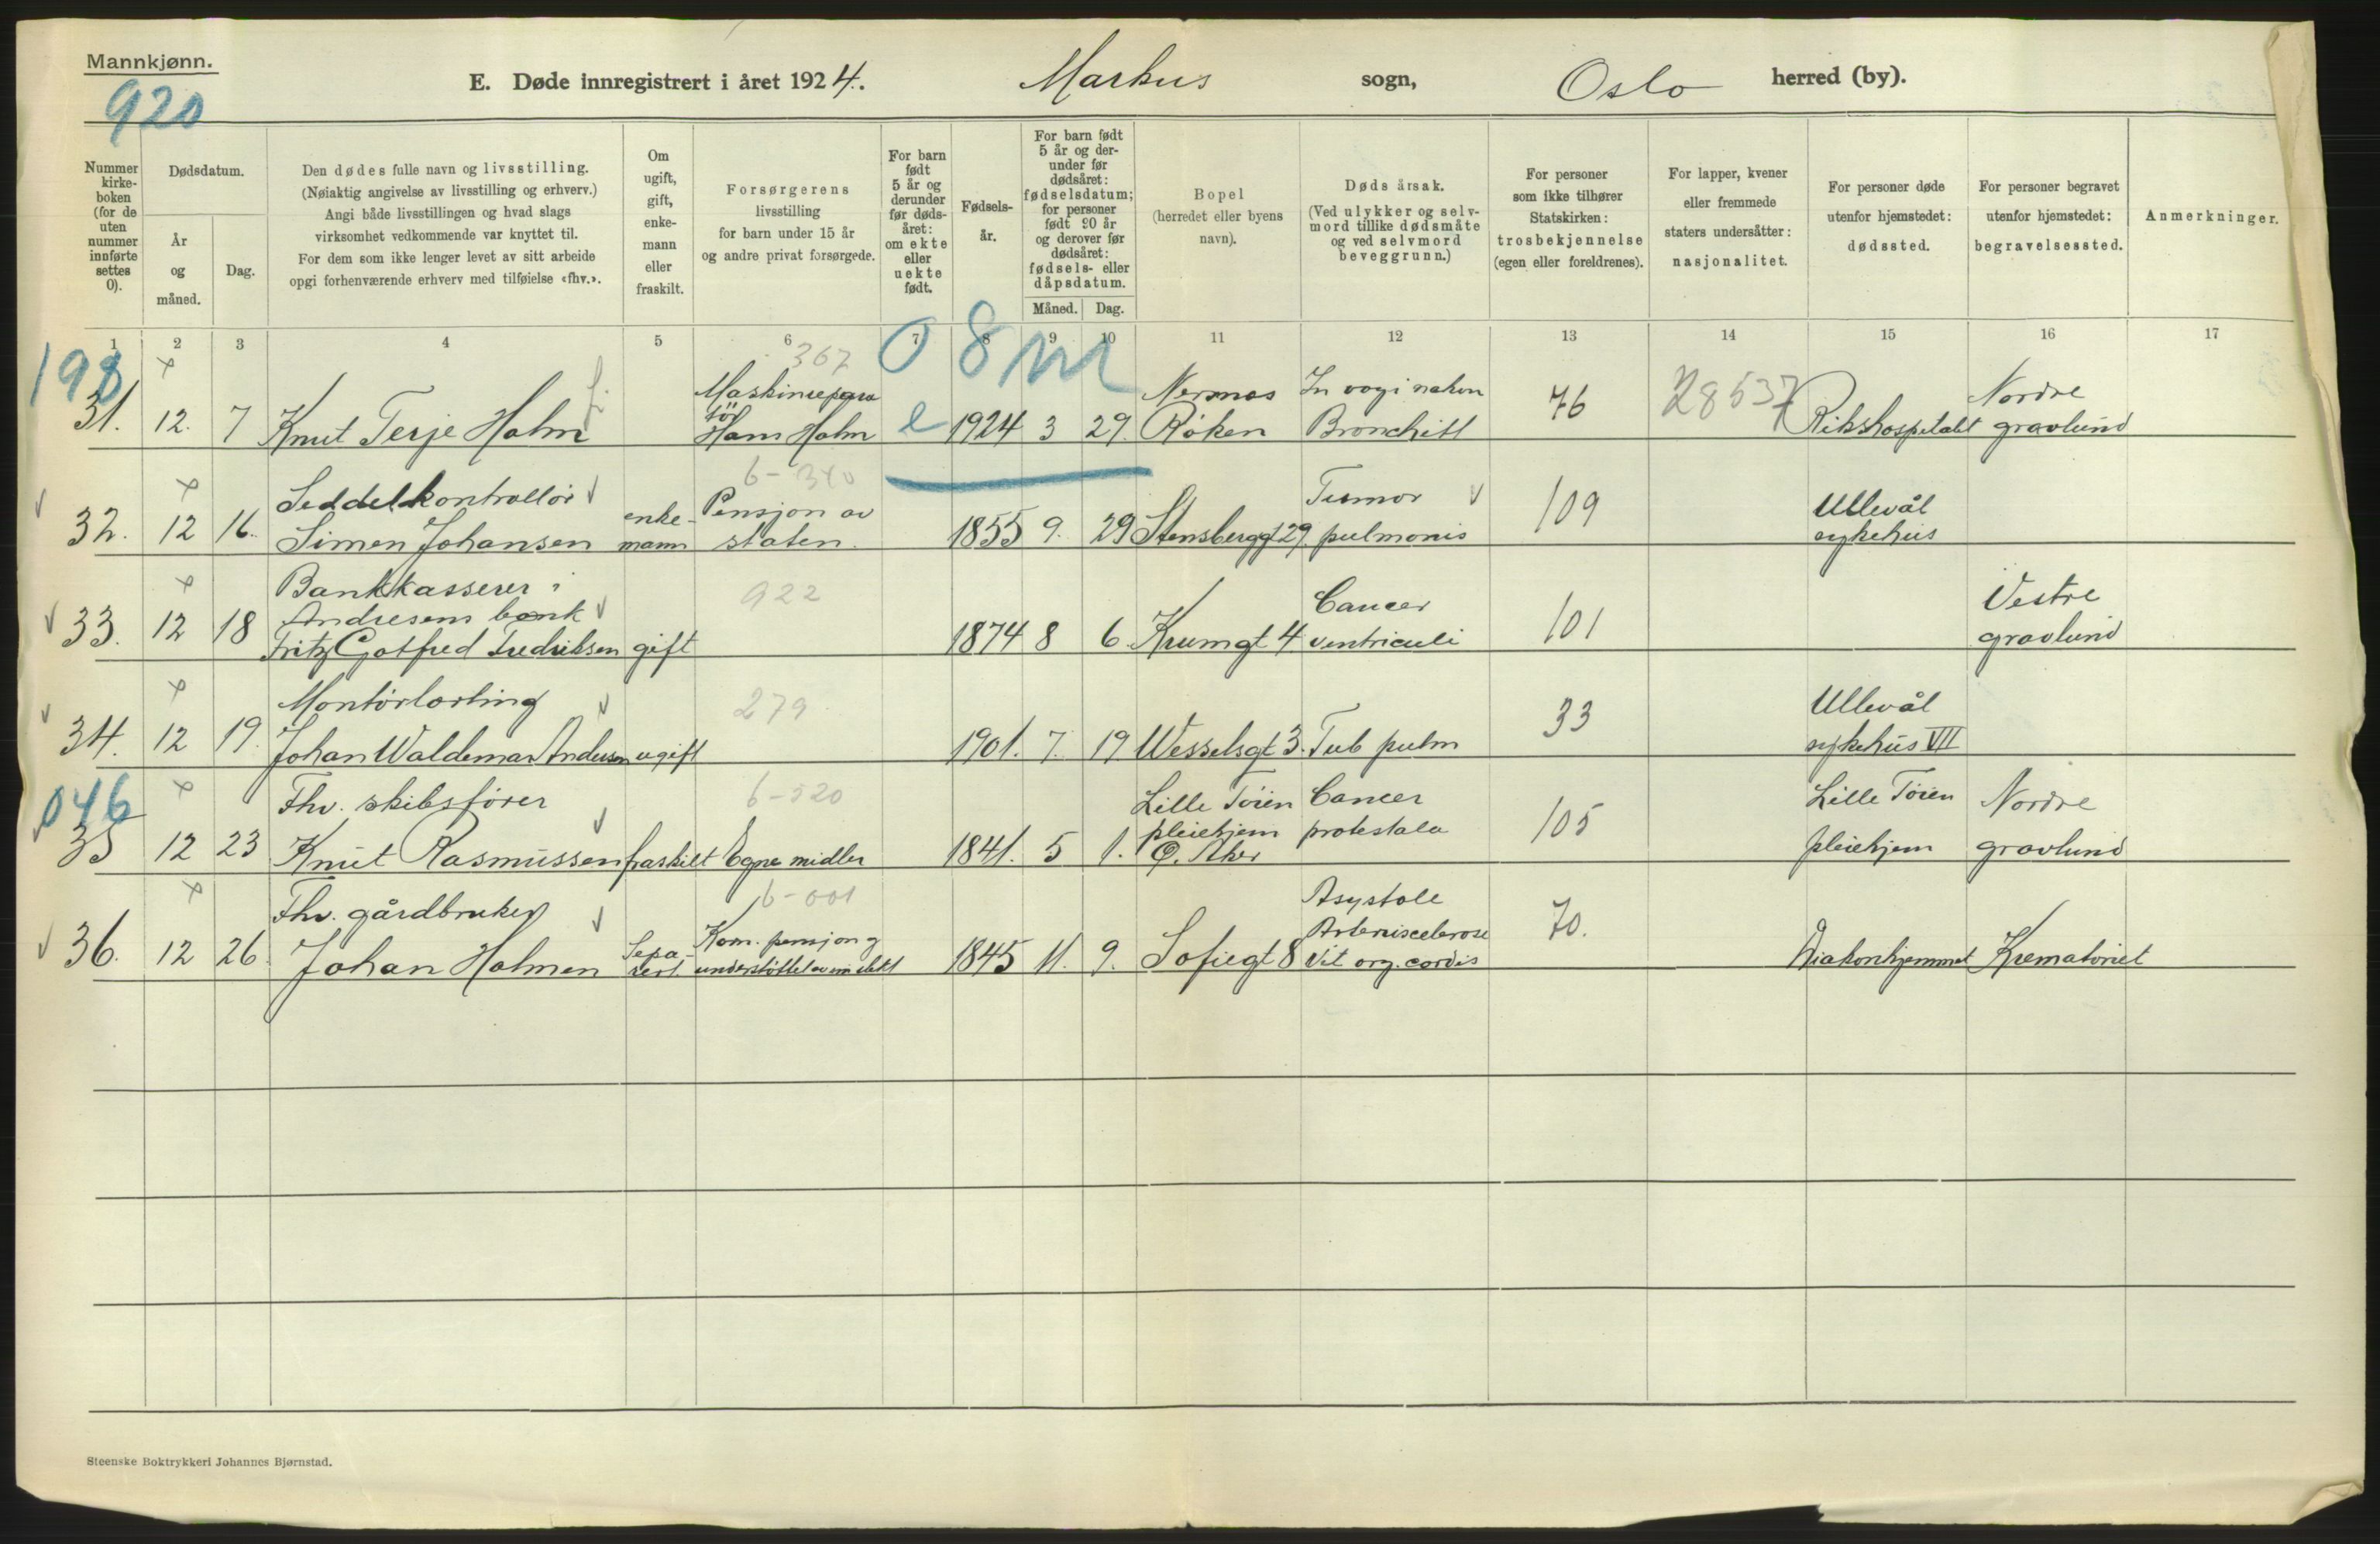 Mannkjønn.
920
E. Døde innregistrert i året 1924. Markus sogn, Oslo herred (by).
Nummer kirke-boken (for de uten nummer innførte settes 0).
Dødsdatum.
År og måned.
Dag.
Den dødes fulle navn og livsstilling.
(Nøiaktig angivelse av livsstilling og erhverv.)
Angi både livsstillingen og hvad slags
virksomhet vedkommende var knyttet til.
For dem som ikke lenger levet av sitt arbeide
opgi forhenværende erhverv med tilføielse «fhv.».
Om ugift, gift, enke-mann eller fraskilt.
Forsørgerens
livsstilling
for barn under 15 år
og andre privat forsørgede.
For barn født 5 år og derunder før døds-året: om ekte eller uekte født.
Fødsels-år.
For barn født 5 år og der-under før dødsåret: fødselsdatum; for personer født 90 år og derover før dødsåret: fødsels- eller dåpsdatum.
Måned. Dag.
Bopel
(herredet eller byens
navn).
Døds årsak.
(Ved ulykker og selv-
mord tillike dødsmåte
og ved selvmord
beveggrunn.)
For personer
som ikke tilhører
Statskirken:
trosbekjennelse
(egen eller foreldrenes).
For lapper, kvener
eller fremmede
staters undersåtter:
nasjonalitet.
For personer døde
utenfor hjemstedet:
dødssted.
For personer begravet
utenfor hjemstedet:
begravelsessted.
Anmerkninger.
1 2 3 4 5 6 7 8 9 10 11 12 13 14 15 16 17
198 367 0 8 m
Maskinrepara Nermos Nordre
tör
31. 12. 7 Knut Terje Holm Hans Holm e 1924 3 29. Røken Bronchitt 76 28537 Rikshospitalet gravlund
6-340
Seddelkontrollør Pensjon av Tumor Ullevål
32. 12 16. Simen Johansen enke-mann staten. 1855 9. 29 Stensberggt 29. pulmonis 109 sykehus
Bankkasserer i 922 Vestre
Andresens bank Cancer
33. 12 18 Fritz Gotfred Fredriksen gift 1874 8 6. Krumgt 4 ventriculi 101 gravlund
Montörlærling 279 Ullevål
34. 12 19. Johan Waldemar Andersen ugift 1901. 7. 19 Wesselsgt 3. Tub pulm 33 sykehus VII
046
Fhv. skibsfører 6-520 Lille Töien Cancer Lille Töien Nordre
pleiehjem
35 12 23 Knut Rasmussen fraskilt Egne midler 1841. 5 1. Ø. Aker protestata 105 pleiehjem gravlund
6-001
Fhv. gårdbruker Kom. pensjon og Asystole
Arteriosclerose
36. 12 26. Johan Holmen Sepa-rert understöttet av 1845 11. 9. Sofiegt 8 Vit org. cordis 70. Diakonhjemmet Krematoriet
Steenske Boktrykkeri Johannes Bjørnstad.